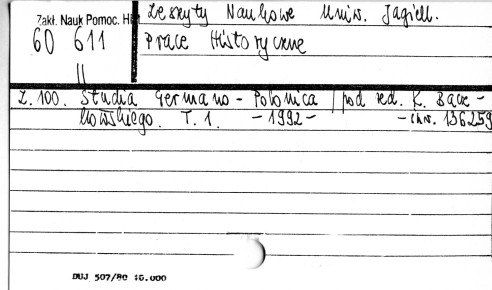 Zakł. Nauk Pomoc. Hi
Zeszyty Naukowe Uniw. Jagiell.
60 611
Prace Historyczne
II
Z. 100. Studia Germano-Polonica / pod red. K. Bącz-
kowskiego. T. 1. - 1992 - - inw. 136259
DUJ 507/80 40.000